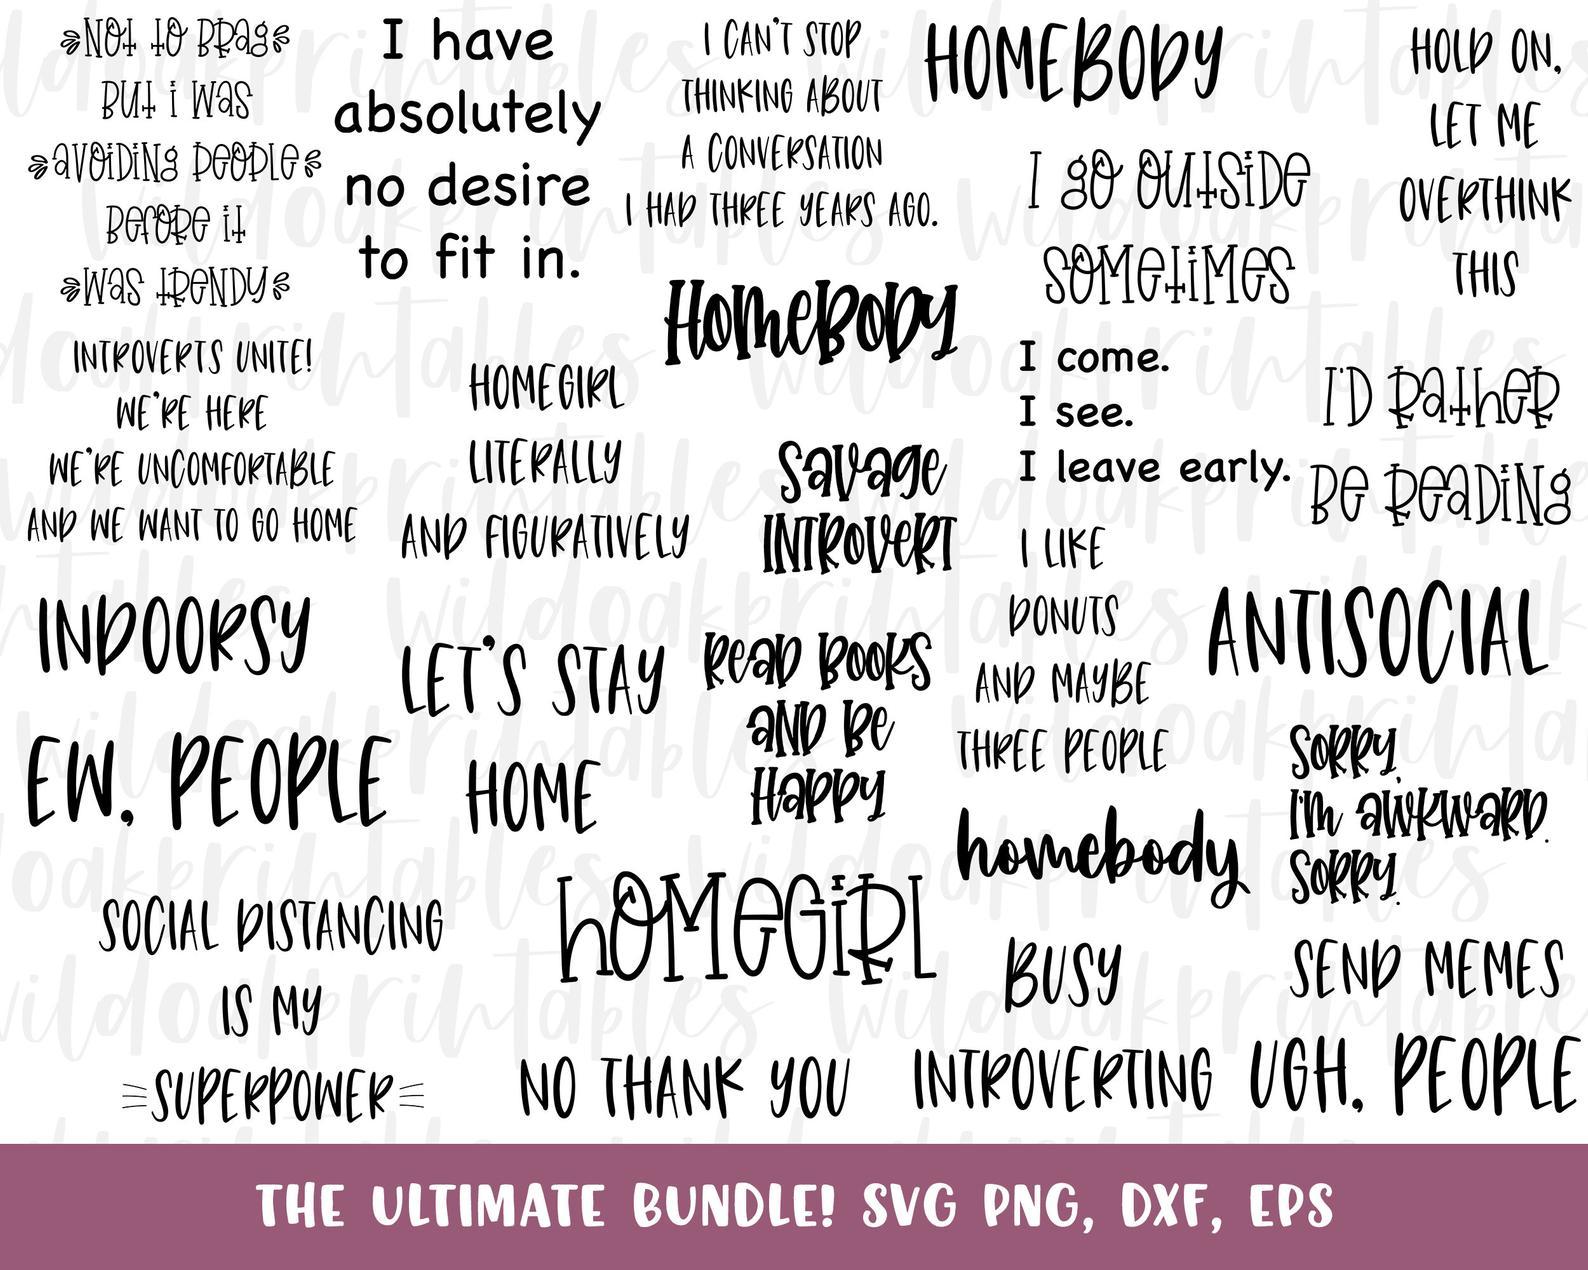 NOT TO BRAG
BUT I WAS
AVOIDING PEOPLE
BEFORE IT
WAS TRENDY
I have
absolutely
no desire
to fit in.
I CAN'T STOP
THINKING ABOUT
A CONVERSATION
I HAD THREE YEARS AGO.
HOMEBODY
HOLD ON,
LET ME
OVERTHINK
THIS
I GO OUTSIDE
SOMETIMES
HOMEBODY
INTROVERTS UNITE!
WE'RE HERE
WE'RE UNCOMFORTABLE
AND WE WANT TO GO HOME
HOMEGIRL
LITERALLY
AND FIGURATIVELY
SAVAGE
INTROVERT
I come.
I see.
I leave early.
I'D RATHER
BE READING
INDOORSY
LET'S STAY
HOME
READ BOOKS
AND BE
HAPPY
I LIKE
DONUTS
AND MAYBE
THREE PEOPLE
ANTISOCIAL
EW, PEOPLE
homebody
SORRY.
I'M AWKWARD.
SORRY.
SOCIAL DISTANCING
IS MY
SUPERPOWER
HOMEGIRL
BUSY
SEND MEMES
NO THANK YOU
INTROVERTING
UGH, PEOPLE
wildoakprintables
THE ULTIMATE BUNDLE! SVG PNG, DXF, EPS